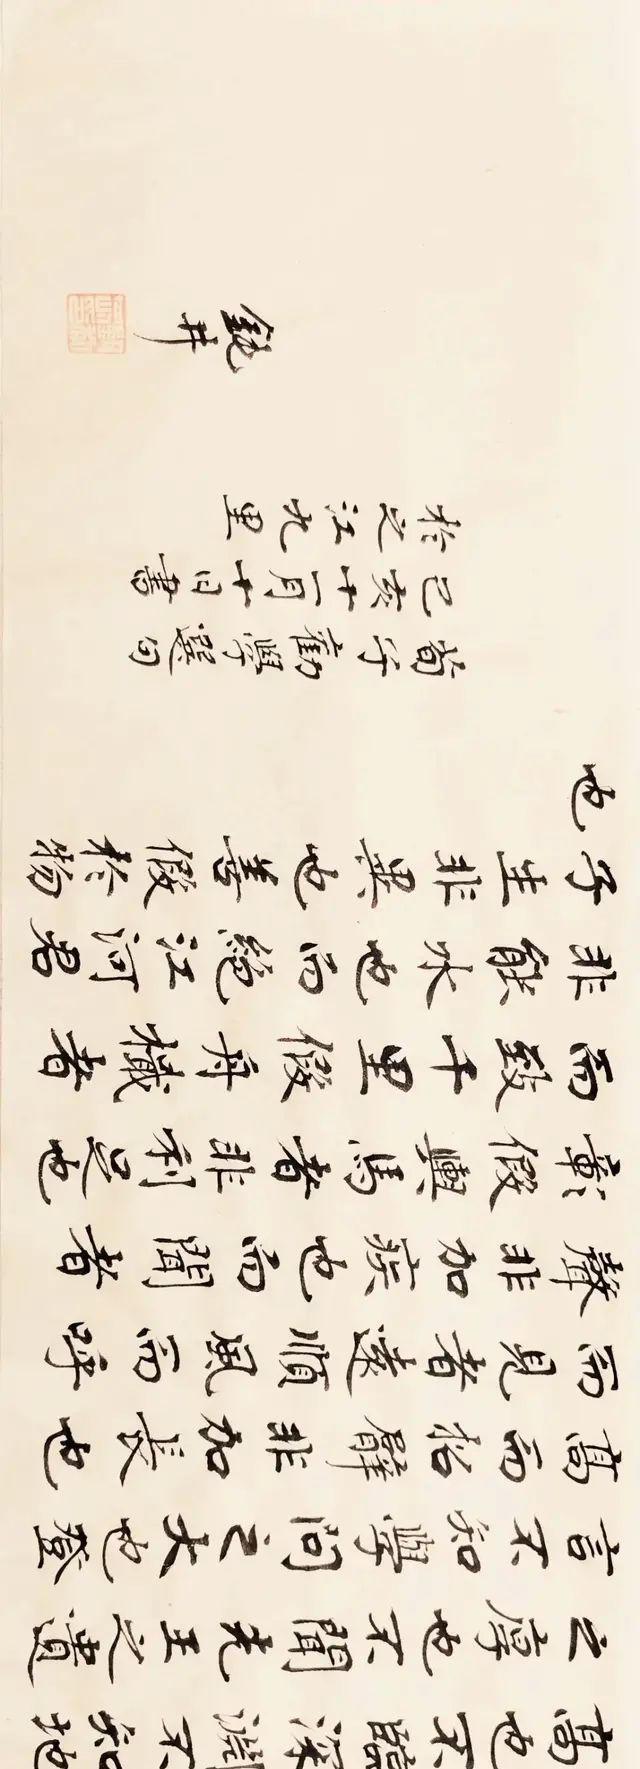 高也不臨深淵不知地
之厚也不聞先王之遺
言不知學問之大也登
高而招臂非加長也
而見者遠順風而呼
聲非加疾也而聞者
彰假輿馬者非利足也
而致千里假舟檝者
非能水也而絕江河君
子生非異也善假於物
也
荀子勸學選句
己亥十一月十日書
於之江九里
井